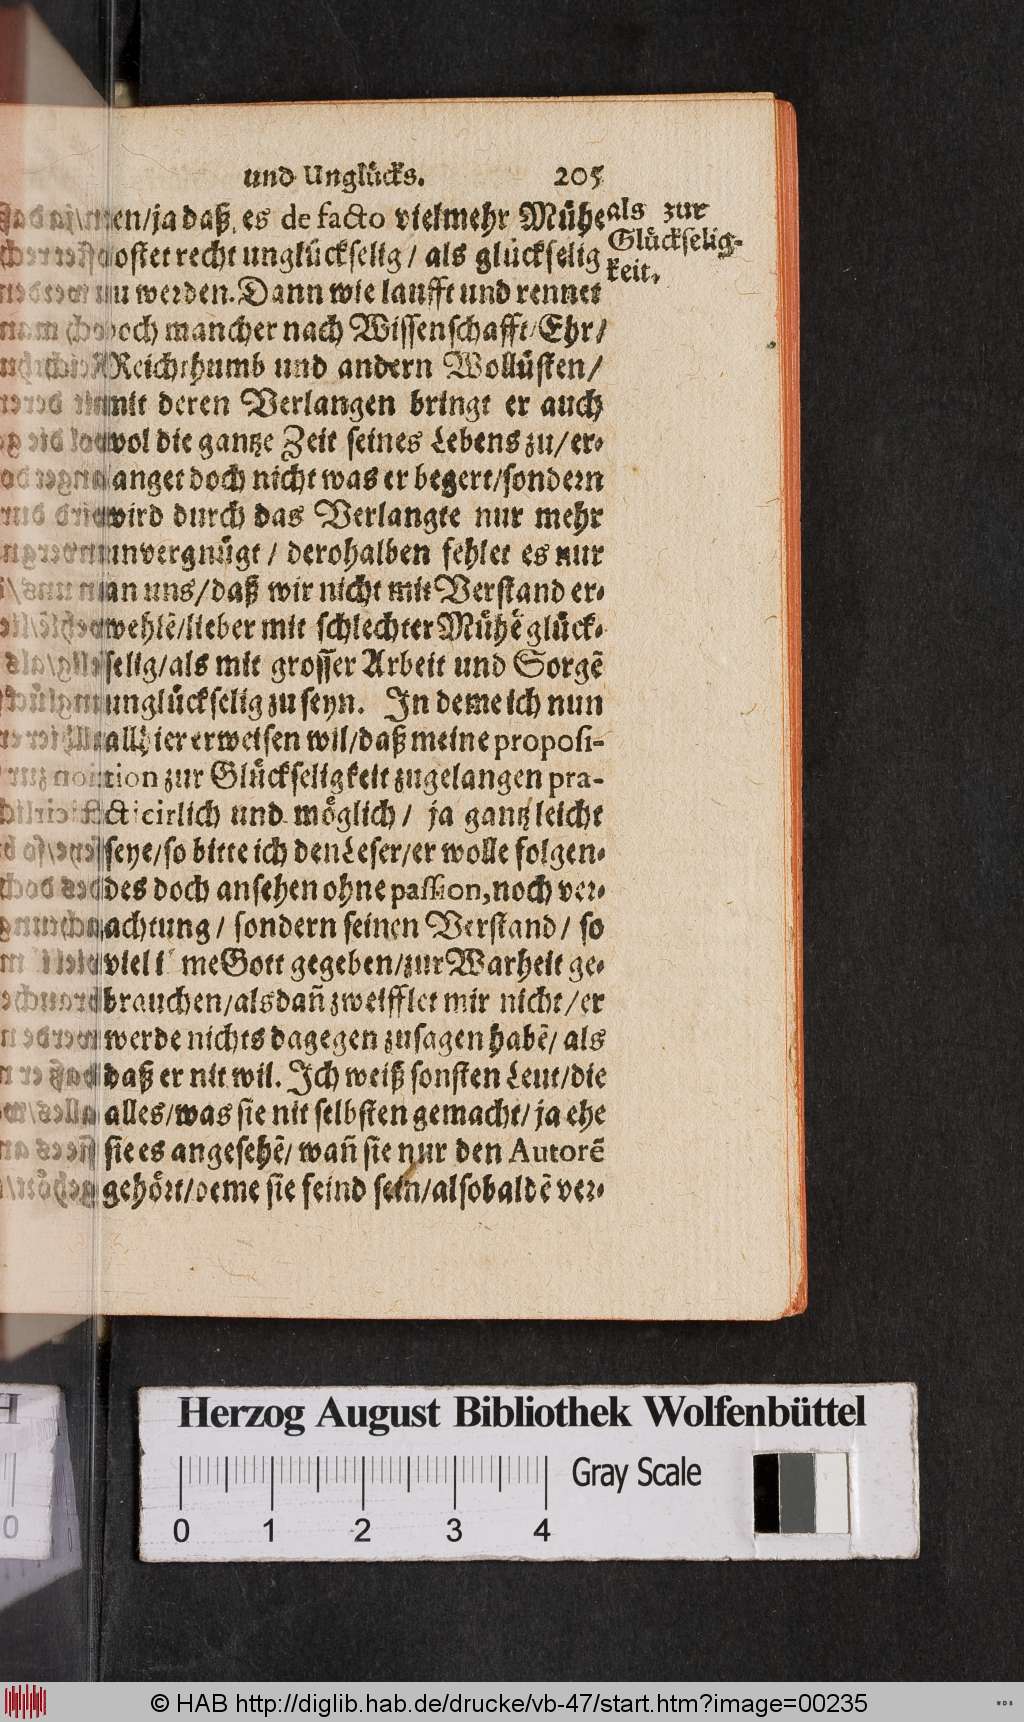 und Unglücks. 205
nen/ja daß es de facto vielmehr Mühe
als zur
Glückselig-
keit.
kostet recht unglückselig / als glückselig
zu werden. Dann wie laufft und rennet
doch mancher nach Wissenschafft/Ehr/
Reichthumb und andern Wollüsten/
mit deren Verlangen bringt er auch
wol die gantze Zeit seines Lebens zu/er-
langet doch nicht was er begert/sondern
wird durch das Verlangte nur mehr
unvergnügt / derohalben fehlet es nur
an uns/daß wir nicht mit Verstand er-
wehlē/lieber mit schlechter Mühe glück-
selig/als mit grosser Arbeit und Sorgē
unglückselig zu seyn. In deme ich nun
allhier erweisen wil/daß meine proposi-
tion zur Glückseligkeit zugelangen pra-
cticirlich und möglich / ja gantz leicht
seye/so bitte ich den Leser/er wolle folgen-
des doch ansehen ohne passion, noch ver-
achtung / sondern seinen Verstand / so
viel ime Gott gegeben/zur Warheit ge-
brauchen/alsdañ zweifflet mir nicht/er
werde nichts dagegen zusagen habē/ als
daß er nit wil. Ich weiß sonsten Leut/die
alles/was sie nit selbsten gemacht/ ja ehe
sie es angesehē/ wañ sie nur den Autorē
gehört/deme sie feind sein/alsobaldē ver-
Herzog August Bibliothek Wolfenbüttel
Gray Scale
0 1 2 3 4
© HAB http://diglib.hab.de/drucke/vb-47/start.htm?image=00235